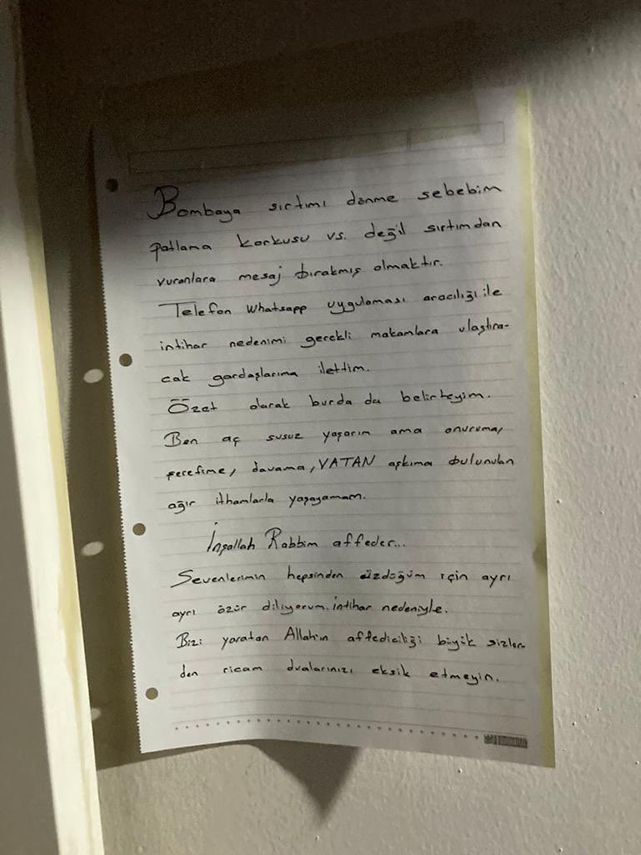 Bombaya sırtımı dönme sebebim
patlama korkusu vs. değil sırtımdan
vuranlara mesaj bırakmış olmaktır.
Telefon Whatsapp uygulaması aracılığı ile
intihar nedenimi gerekli makamlara ulaştıra-
cak gardaşlarıma ilettim.
Özet olarak burda da belirteyim.
Ben aç susuz yaşarım ama onuruma,
şerefime, davama, VATAN aşkıma bulunulan
ağır ithamlarla yaşayamam.
İnşallah Rabbim affeder...
Sevenlerimin hepsinden üzdüğüm için ayrı
ayrı özür diliyorum. intihar nedeniyle.
Bizi yaratan Allahın affediciliği büyük sizler-
den ricam dualarınızı eksik etmeyin.